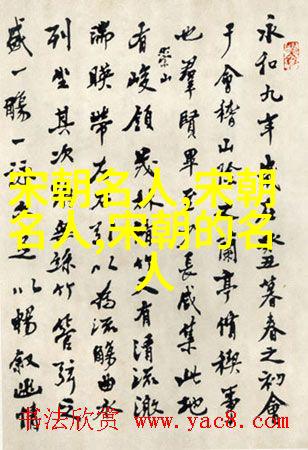 永和九年丑暮春之初會
于會稽山蘭亭脩稧事
也羣賢畢至長咸集此地
崇山
有峻領茂林脩竹又有清流激
湍暎帶左右以為流觴曲水
列坐其次無絲竹管弦之
盛一觴一詠以暢叙幽情
宋朝名人,宋朝
名人,宋朝的名
人
书法欣赏 www.yac8.com